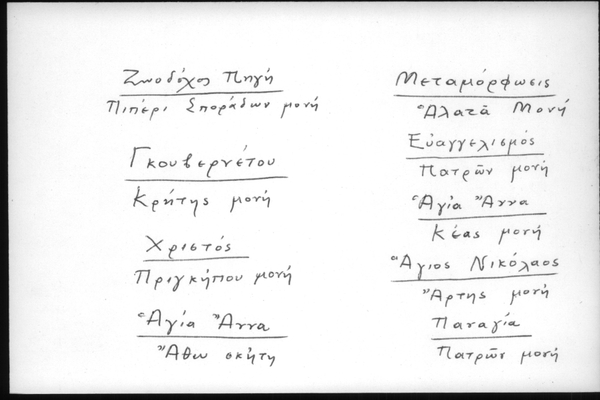 Ζωοδόχος Πηγή
Πιπέρι Σποράδων μονή
Γκουβερνέτου
Κρήτης μονή
Χριστός
Πριγκήπου μονή
Ἁγία Ἄννα
Ἄθω σκήτη
Μεταμόρφωσις
Ἀλατᾶ Μονή
Εὐαγγελισμός
Πατρῶν μονή
Ἁγία Ἄννα
Κέας μονή
Ἅγιος Νικόλαος
Ἄρτης μονή
Παναγία
Πατρῶν μονή